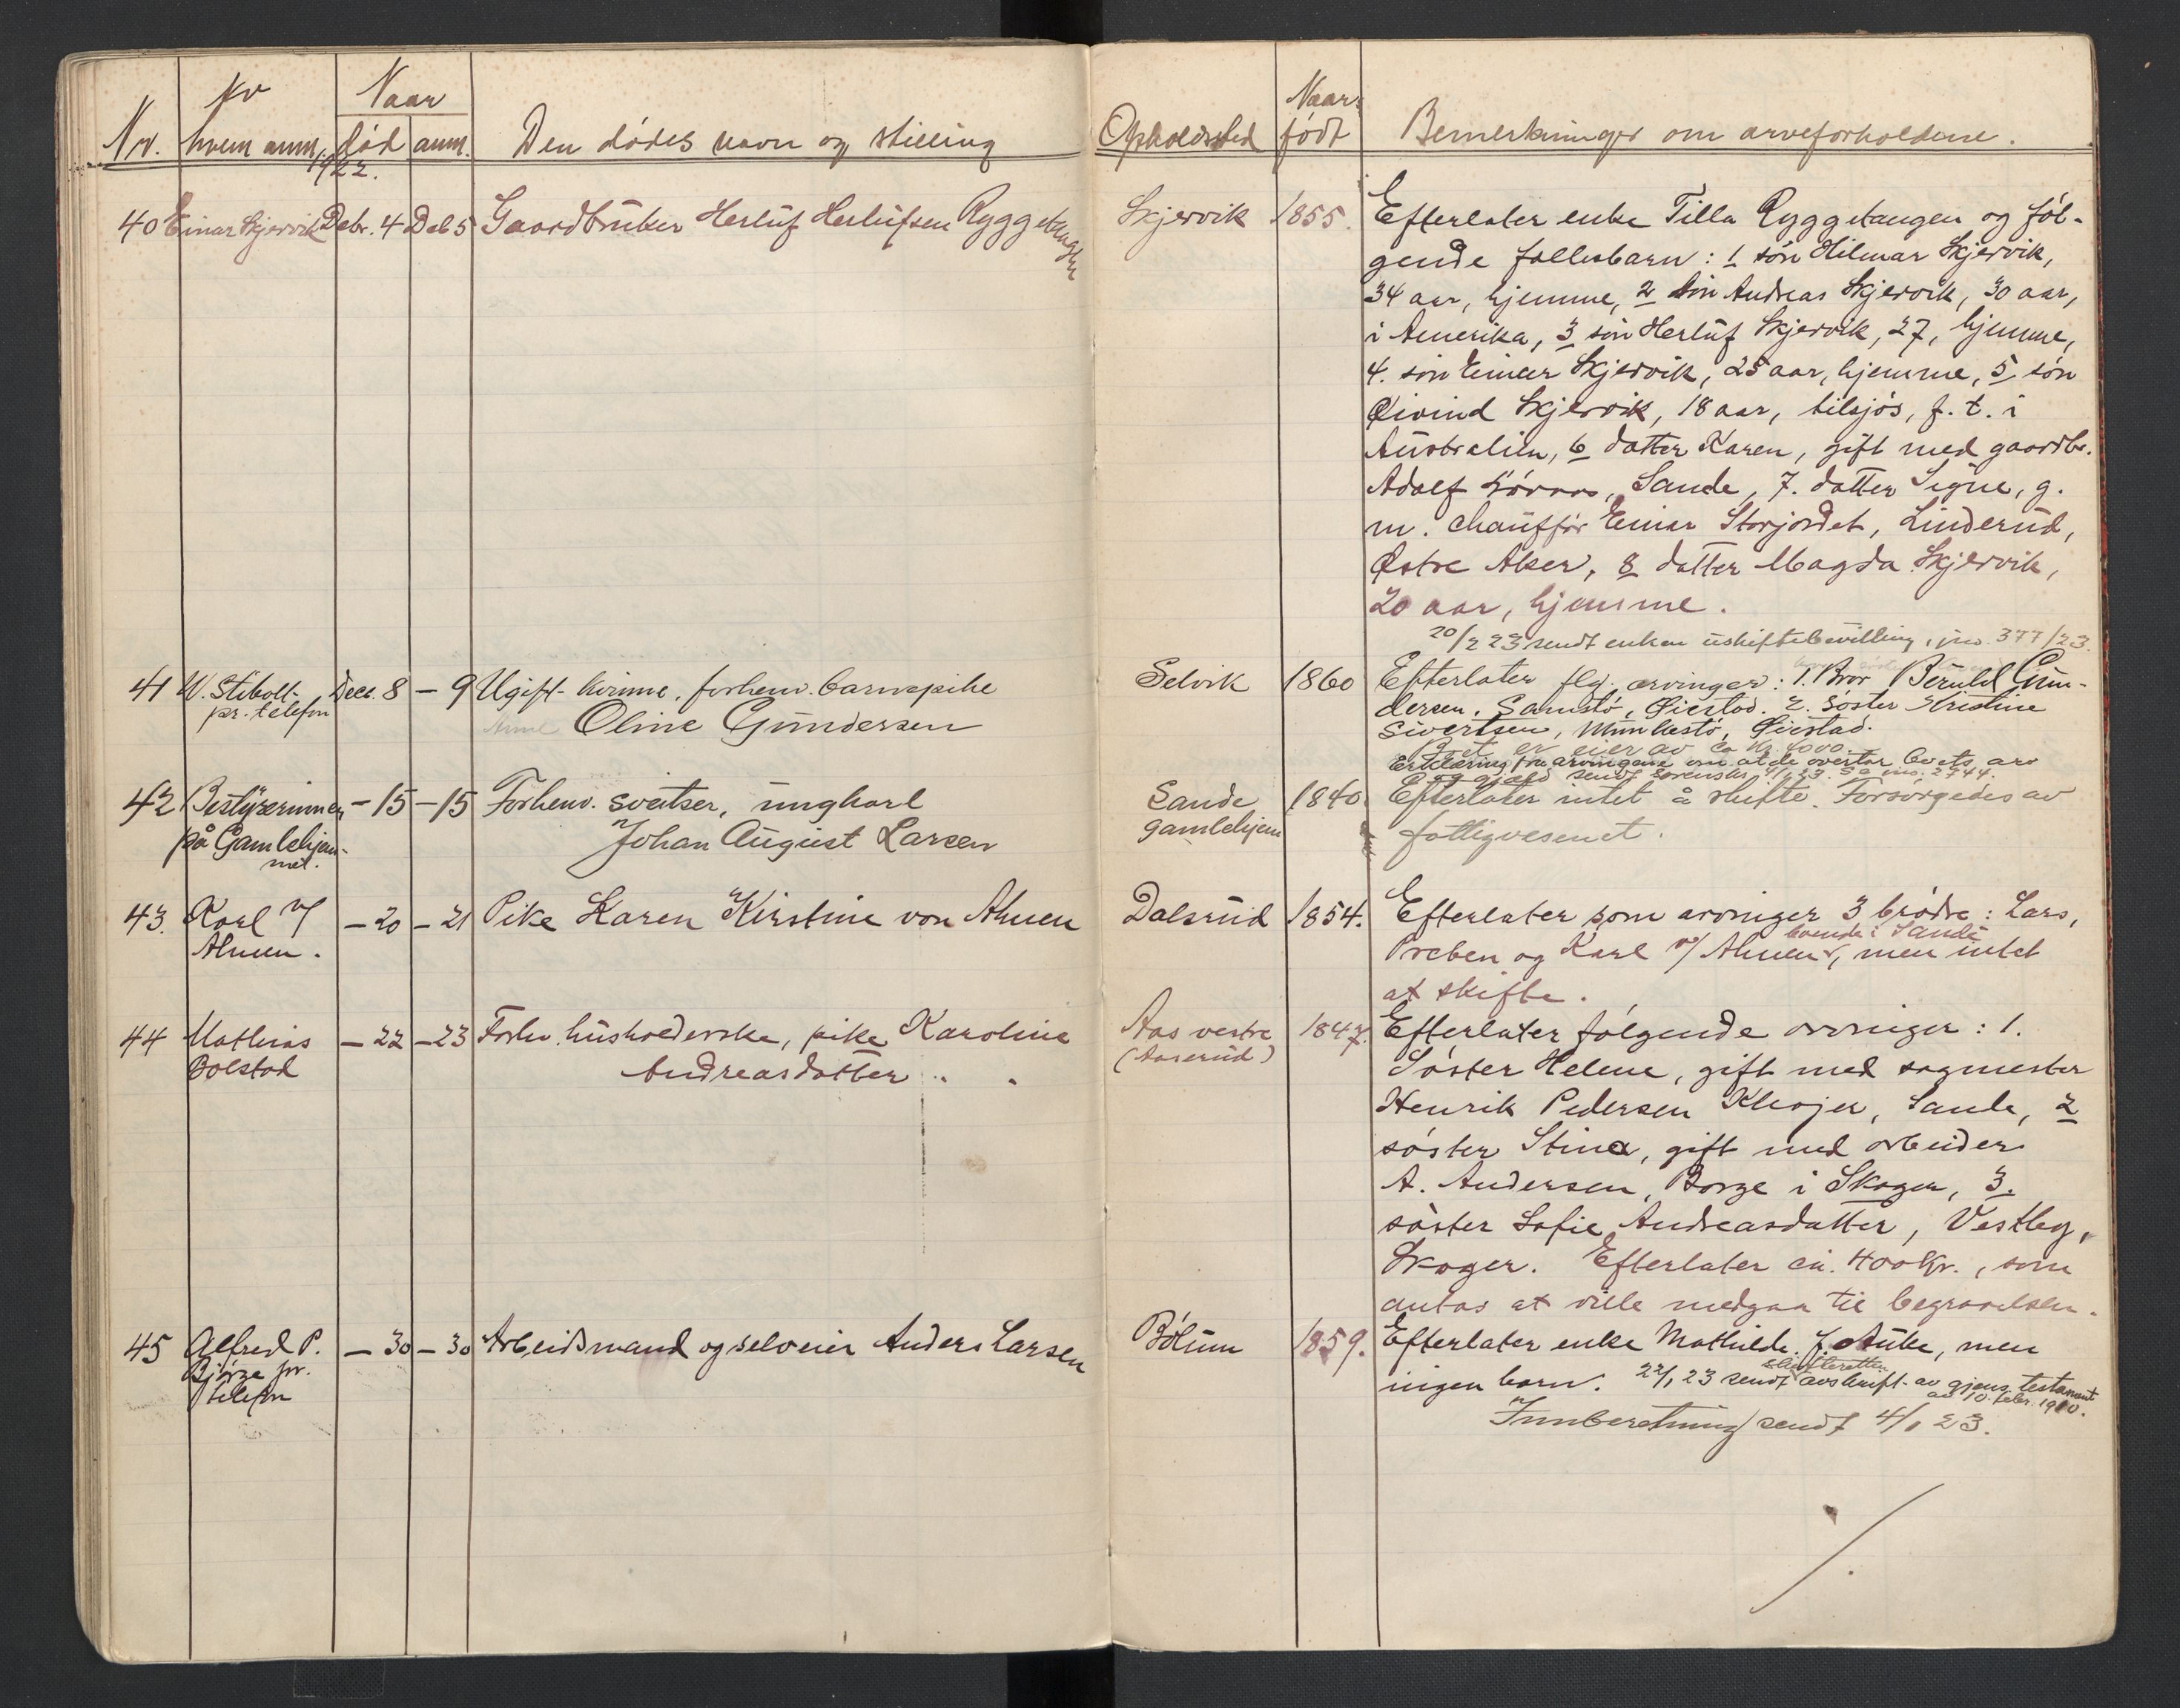 Nr. Av hvem anm. Naar død anm. Den dødes navn og stilling Opholdssted Naar født Bemerkninger om arveforholdene.
1922.
40 Einar Skjervik Debr. 4 Deb 5 Gaardbruker Herluf Herlufsen Ryggetangen Skjervik 1855.
Efterlater enke Tilla Ryggetangen og føl-
gende fellesbarn: 1 søn Hilmar Skjervik,
34 aar, hjemme, 2 søn Andreas Skjervik, 30 aar,
i Amerika, 3 søn Herluf Skjervik, 27, hjemme,
4. søn Einar Skjervik, 25 aar, hjemme, 5 søn
Øivind Skjervik, 18 aar, tilsjøs, f. t. i
Australien, 6 datter Karen, gift med gaardbr.
Adolf, Sande, 7. datter Signe, g.
m. chauffør Einar Storjordet, Linderud,
Østre Aker, 8 datter Magda Skjervik,
20 aar, hjemme.
20/2 23 sendt enken uskiftebevilling, jno. 377/23.
41 W. Stibolt pr. telefon Dec. 8 – 9 Ugift kvinne, forhenv. barnepike
Oline Gundersen
Selvik 1860
Efterlater flg. arvinger: 1. Bror Berulf Gun-
dersen, Samstø, Øiestad. 2. Søster Kristine
Sivertsen, Munkestø, Øiestad.
Boet er eier av ca kr. 4000.
Erklæring fra arvingene om at de overtar boets arv
og gjæld sendt sorenskr.
42 Bestyrerinnen
på Gamlehjem-
met.
– 15 – 15 Forhenv. sveitser, ungkarl
Johan August Larsen
Sande
gamlehjem
1840
Efterlater intet å skifte. Forsørgedes av
fattigvesenet.
43. Karl v/
Ahnen.
– 20 – 21 Pike Karen Kirstine von Ahnen Dalsrud 1854.
Efterlater som arvinger 3 brødre: Lars,
boende i Sande
Preben og Karl v/ Ahnen, men intet
at skifte.
44 Mathias
Bolstad
– 22 – 23 Forhv. husholderske, pike Karoline
Andreasdatter
Aas vestre
(Aaserud)
1847.
Efterlater følgende arvinger: 1.
Søster Helene, gift med sagmester
Henrik Pedersen Klevjer, Sande, 2
søster Stina, gift med arbeider
A. Andersen, Borge i Skoger, 3.
søster Sofie Andreasdatter, Vestby,
Skoger. Efterlater ca. 400 kr., som
antas at ville medgaa til begravelsen.
45 Alfred P.
Bjørge pr.
telefon
– 30 – 30 Arbeidsmand og selveier Anders Larsen Bølum 1859.
Efterlater enke Mathilde f. Auke, men
skifteretten
ingen barn. 22/1 23 sendt avskrift av gjens. testament
av 10. febr. 1910.
Innberetning sendt 4/1 23.